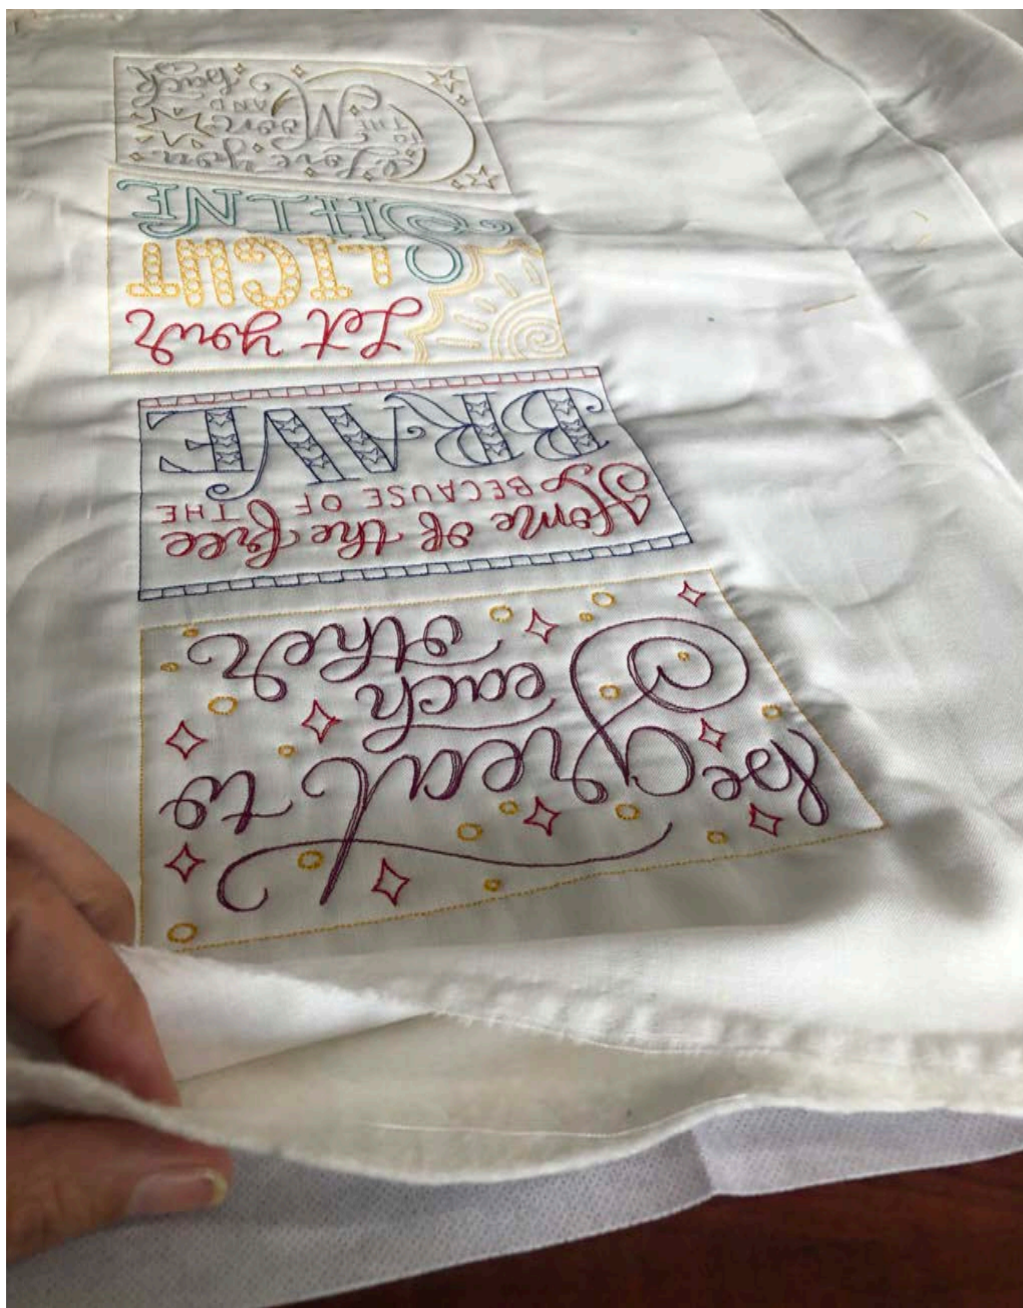 be great to
each
other
Home of the free
BECAUSE OF THE
BRAVE
Let your
LIGHT
SHINE
love you
to THE Moon AND
back